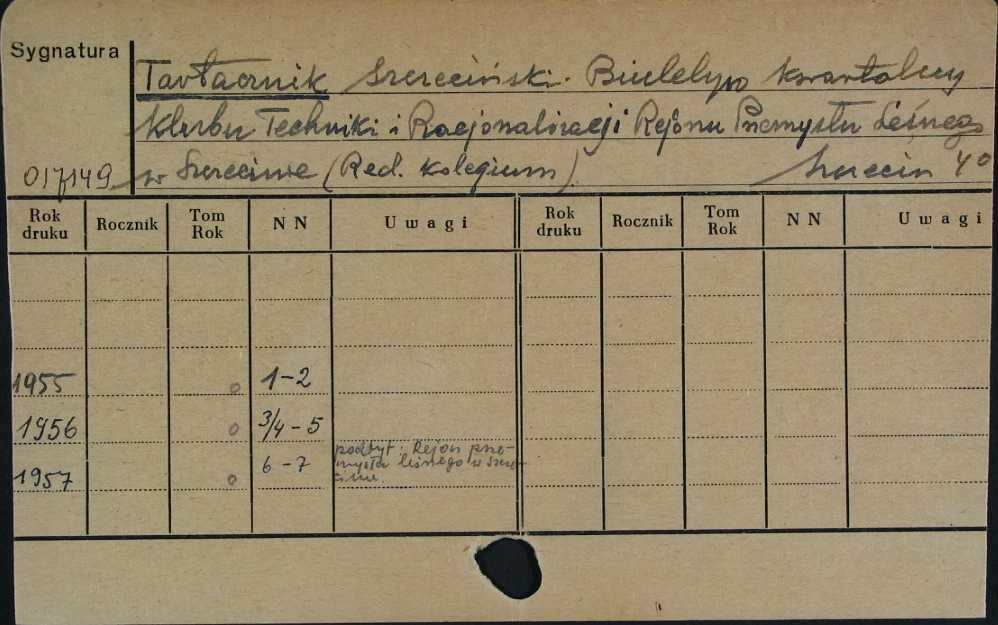 Sygnatura
Tartacznik Szczeciński. Biuletyn kwartalny
Klubu Techniki i Racjonalizacji Rejonu Przemysłu Leśnego
017149 w Szczecinie (Red. Kolegium) Szczecin 4°
Rok druku Rocznik Tom Rok N N Uwagi Rok druku Rocznik Tom Rok N N Uwagi
1955 0 1-2
1956 0 3/4 - 5
1957 0 6 - 7 podtyt: Rejon prze-
mysłu leśnego w Szcze-
cinie.